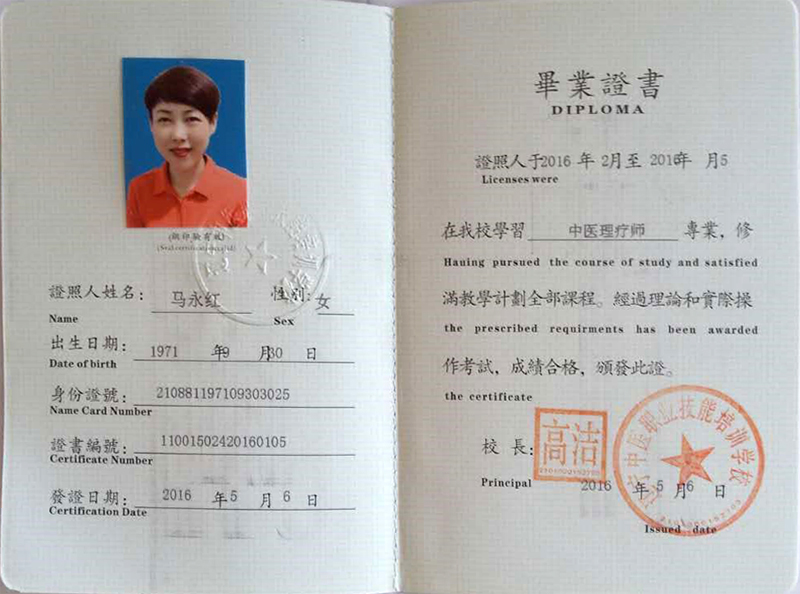 (钢印验有效)
證照人姓名：马永红 性别：女
Name Sex
出生日期：1971 年9 月30 日
Date of birth
身份證號：210881197109303025
Name Card Number
證書編號：11001502420160105
Certificate Number
發證日期：2016 年5 月6 日
Certification Date
畢業證書
DIPLOMA
證照人于2016 年 2月至 2016年 月5
Licenses were
在我校學習 中医理疗师 專業，修
Hauing pursued the course of study and satisfied
滿教學計劃全部課程。經過理論和實際操
the prescribed requirments has been awarded
作考試，成績合格，頒發此證。
the certificate
校 長：高洁
Principal 2016 年5 月6 日
Issued date
中医职业技能培训学校